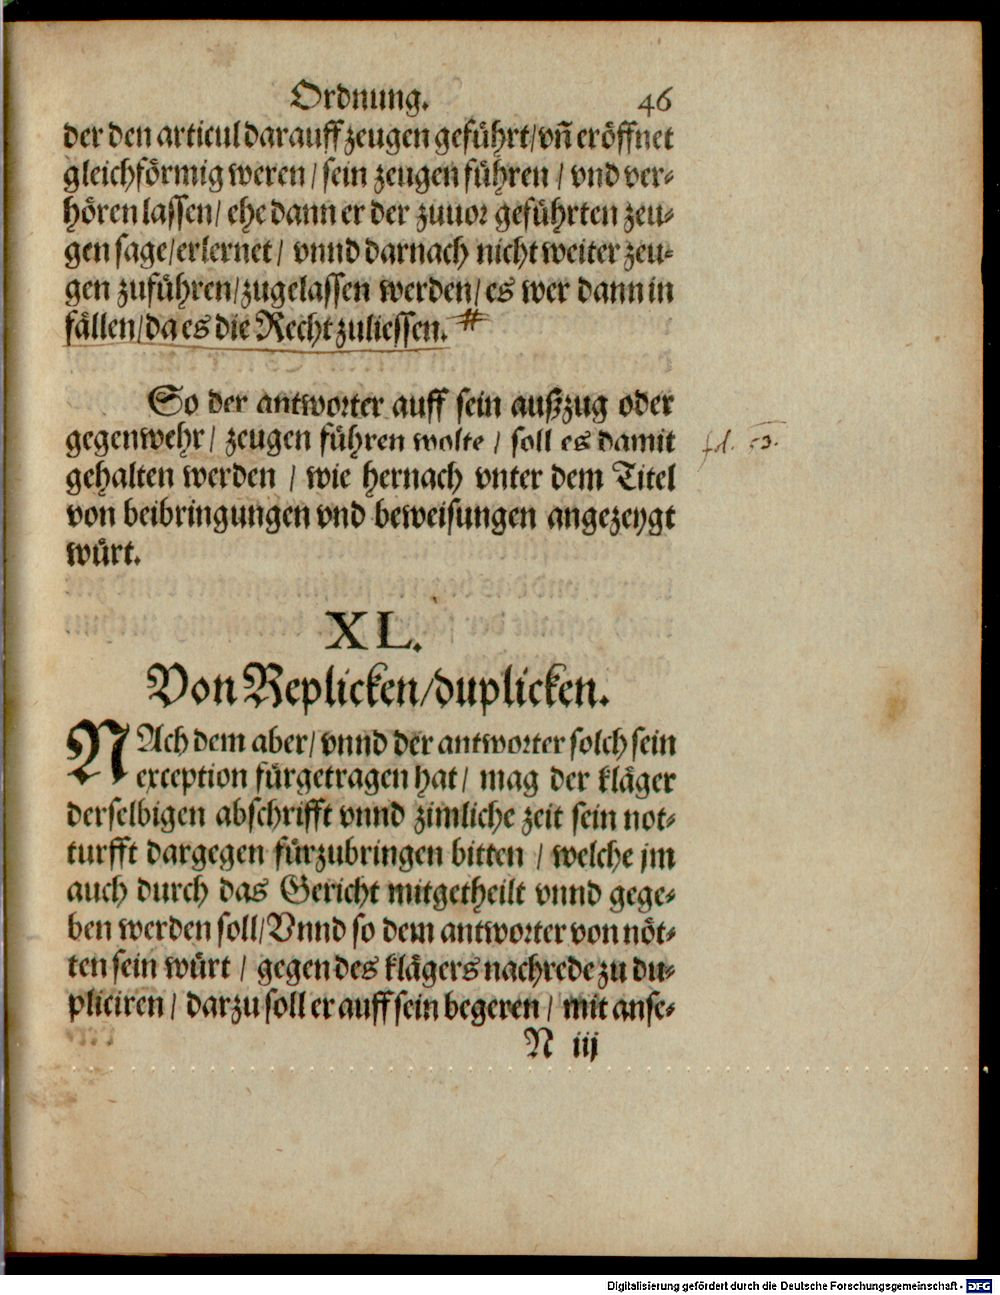 Ordnung. 46
der den articul darauff zeugen geführt/ vñ eröffnet
gleichförmig weren / sein zeugen führen / vnd ver-
hören lassen/ ehe dann er der zuuor geführten zeu-
gen sage/erlernet/ vnnd darnach nicht weiter zeu-
gen zuführen/zugelassen werden/ es wer dann in
fällen/da es die Recht zuliessen. #
So der antworter auff sein außzug oder
gegenwehr/ zeugen führen wolte / soll es damit
gehalten werden / wie hernach vnter dem Titel
von beibringungen vnd beweisungen angezeygt
würt.
XL.
Von Replicken/duplicken.
NAch dem aber/ vnnd der antworter solch sein
exception fürgetragen hat/ mag der kläger
derselbigen abschrifft vnnd zimliche zeit sein not-
turfft dargegen fürzubringen bitten / welche jm
auch durch das Gericht mitgetheilt vnnd gege-
ben werden soll/Vnnd so dem antworter von nöt-
ten sein würt / gegen des klägers nachrede zu du-
pliciren / darzu soll er auff sein begeren / mit anse-
N iij
Digitalisierung gefördert durch die Deutsche Forschungsgemeinschaft - DFG